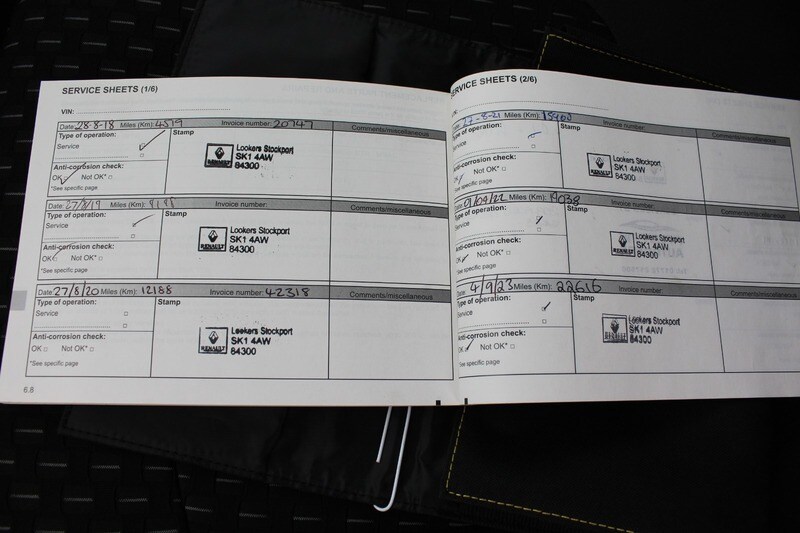 SERVICE SHEETS (1/6)
VIN:
Date: 28-8-18 Miles (Km): 4519 Invoice number: 20747 Comments/miscellaneous
Type of operation: Stamp
Service
Anti-corrosion check:
OK Not OK*
*See specific page
RENAULT
Lookers Stockport
SK1 4AW
84300
Date: 27/8/19 Miles (Km): Invoice number: Comments/miscellaneous
Type of operation: Stamp
Service
Anti-corrosion check:
OK Not OK*
*See specific page
RENAULT
Lookers Stockport
SK1 4AW
84300
Date: 27/8/20 Miles (Km): 12188 Invoice number: 42318 Comments/miscellaneous
Type of operation: Stamp
Service
Anti-corrosion check:
OK Not OK*
*See specific page
RENAULT
Lookers Stockport
SK1 4AW
84300
6.8
SERVICE SHEETS (2/6)
Date: 27-8-21 Miles (Km): Invoice number: Comments/miscellaneous
Type of operation: Stamp
Service
Anti-corrosion check:
OK Not OK*
*See specific page
Lookers Stockport
SK1 4AW
84300
Miles (Km): 19038 Invoice number: Comments/miscellaneous
Type of operation: Stamp
Service
Anti-corrosion check:
OK Not OK*
*See specific page
RENAULT
Lookers Stockport
SK1 4AW
84300
Date: 4/9/23 Miles (Km): 22616 Invoice number: Comments/miscellaneous
Type of operation: Stamp
Service
Anti-corrosion check:
OK Not OK*
*See specific page
RENAULT
Lookers Stockport
SK1 4AW
84300